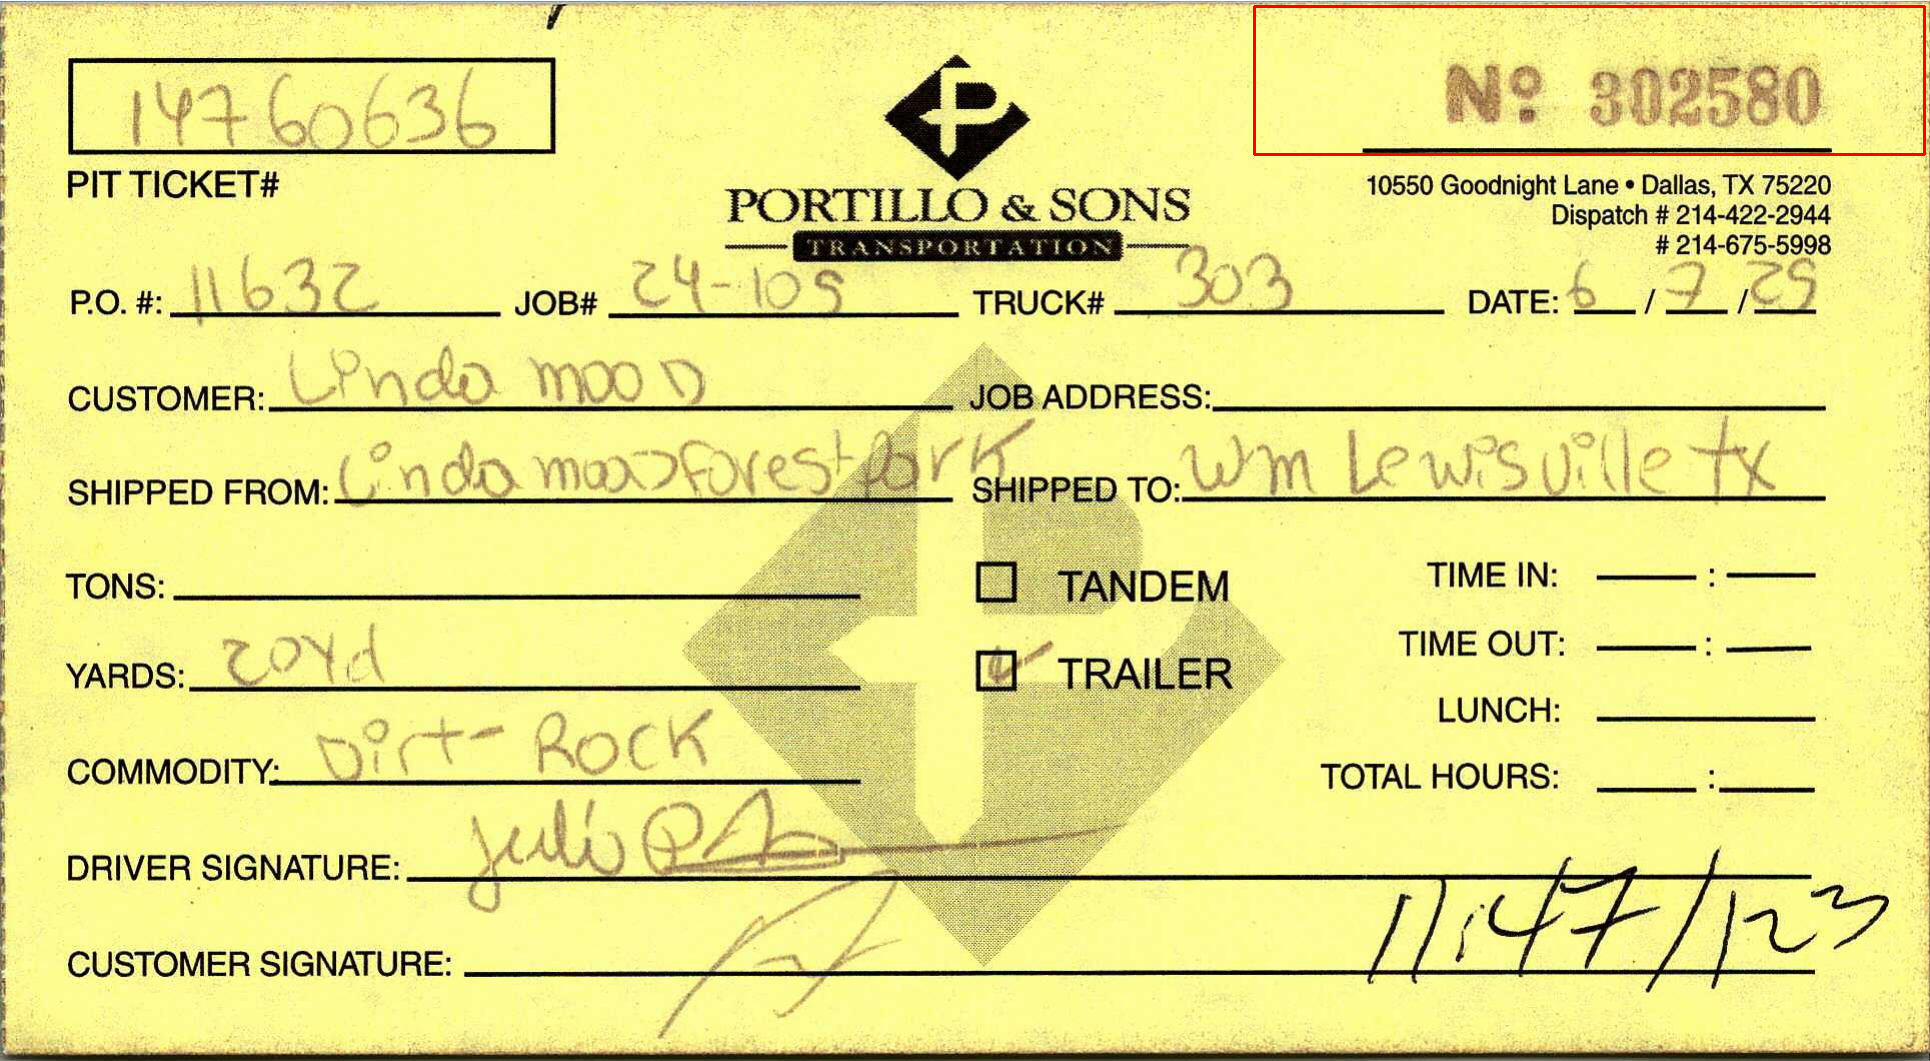 14760636
Nº 302580
PIT TICKET#
PORTILLO & SONS
TRANSPORTATION
10550 Goodnight Lane • Dallas, TX 75220
Dispatch # 214-422-2944
# 214-675-5998
P.O. #: 11632 JOB# 24-105 TRUCK# 303 DATE: 6 / 7 / 25
CUSTOMER: Linda mood JOB ADDRESS:
SHIPPED FROM: Linda mood forest park SHIPPED TO: Wm Lewisville tx
TONS: TANDEM TIME IN: :
YARDS: 20Yd TRAILER TIME OUT: :
LUNCH:
COMMODITY: Dirt-Rock TOTAL HOURS: :
DRIVER SIGNATURE: Julio
CUSTOMER SIGNATURE: 11:47/123